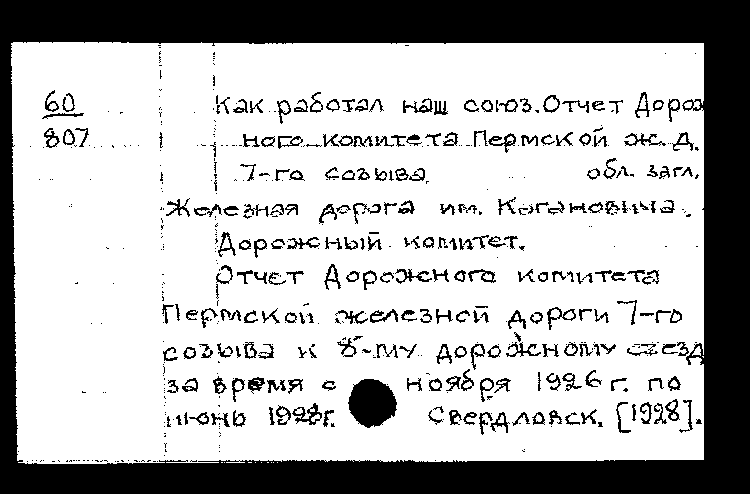 60 Как работал наш союз. Отчет Дорож
807 ного комитета Пермской ж. д.
7-го созыва обл. загл.
Железная дорога им. Кагановича.
Дорожный комитет.
Отчет Дорожного комитета
Пермской железной дороги 7-го
созыва к 8-му дорожному съезд
за время с ноября 1926 г. по
июнь 1928г. Свердловск. [1928].